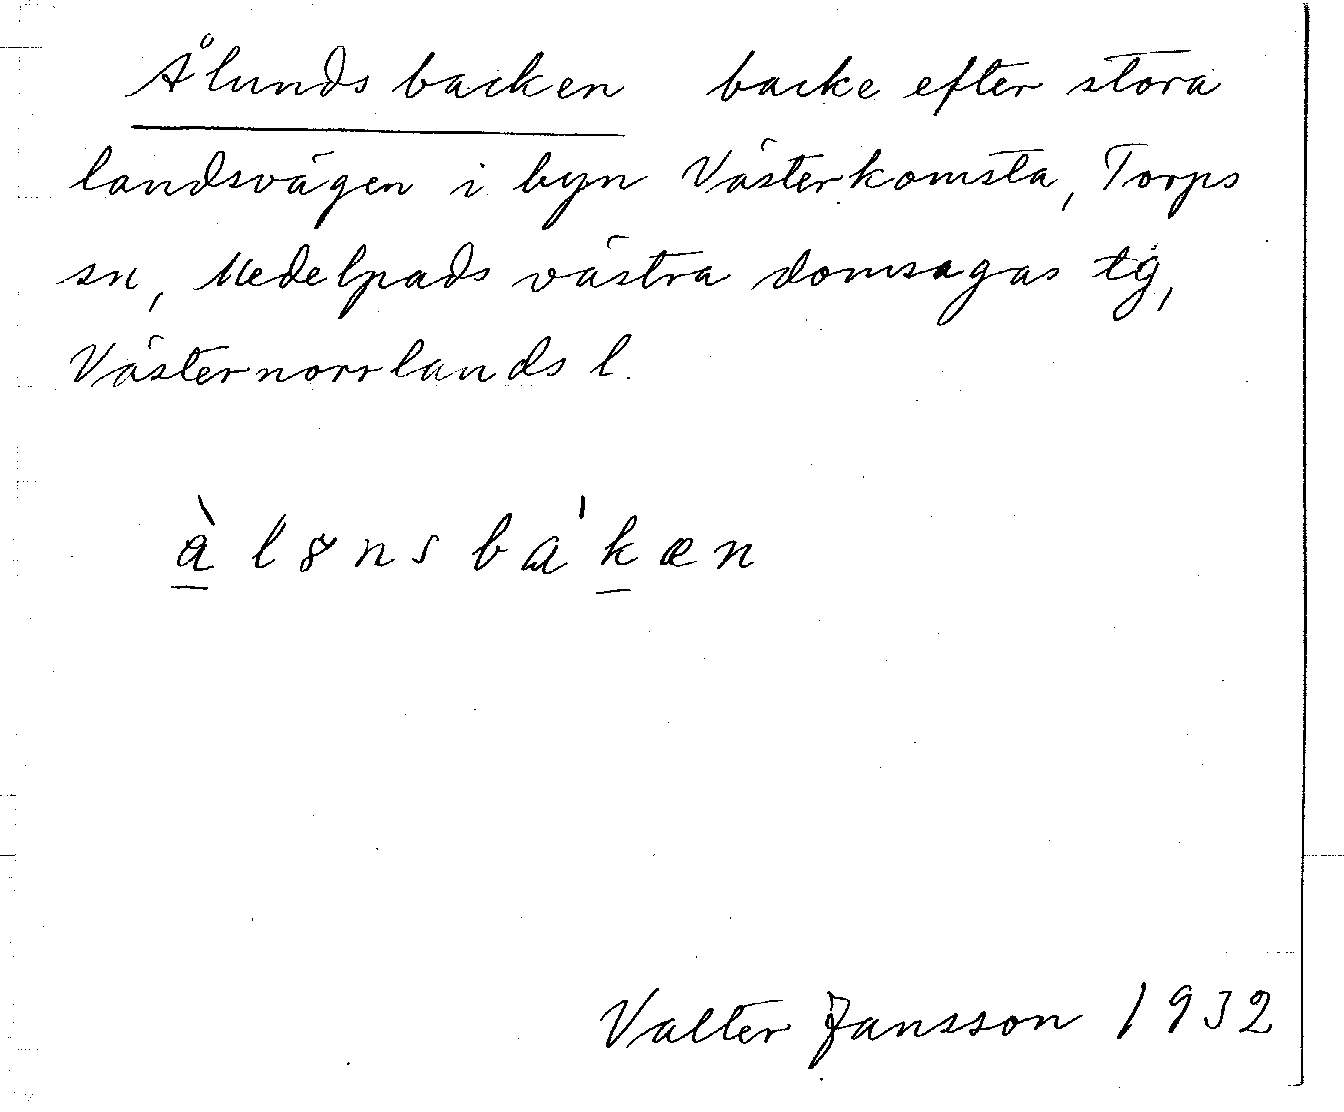 Ålundsbacken backe efter stora
landsvägen i byn Västerkomsta, Torps
sn, Medelpads västra domsagas tg,
Västernorrlands l.
å̀lɞnsba'kæn
Valter Jansson 1932